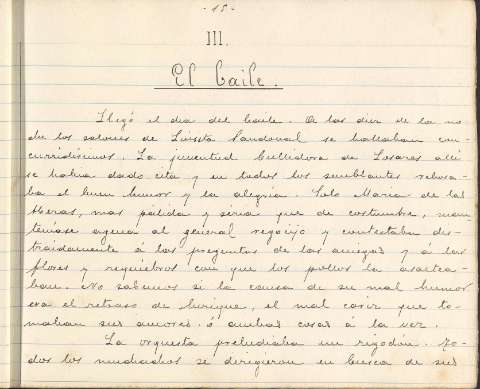 - 15 -
III.
El baile.
Llegó el dia del baile. A las diez de la no-
che los salones de Lisista Sandoval se hallaban con-
curridisimos. La juventud bullidora de Losares alli
se habia dado cita y en todos los semblantes rebosa-
ba el buen humor y la alegria. Solo Maria de las
Heras, mas pálida y seria que de costumbre, man-
teniase agena al general regocijo y contestaba dis-
traidamente á las preguntas de las amigas y á las
flores y requiebros con que los pollos la asaetea-
ban. No sabemos si la causa de su mal humor
era el retraso de Enrique, el mal cariz que to-
maban sus amores ó ambas cosas á la vez.
La orquesta preludiaba un rigodón. To-
dos los muchachos se dirigieron en busca de sus